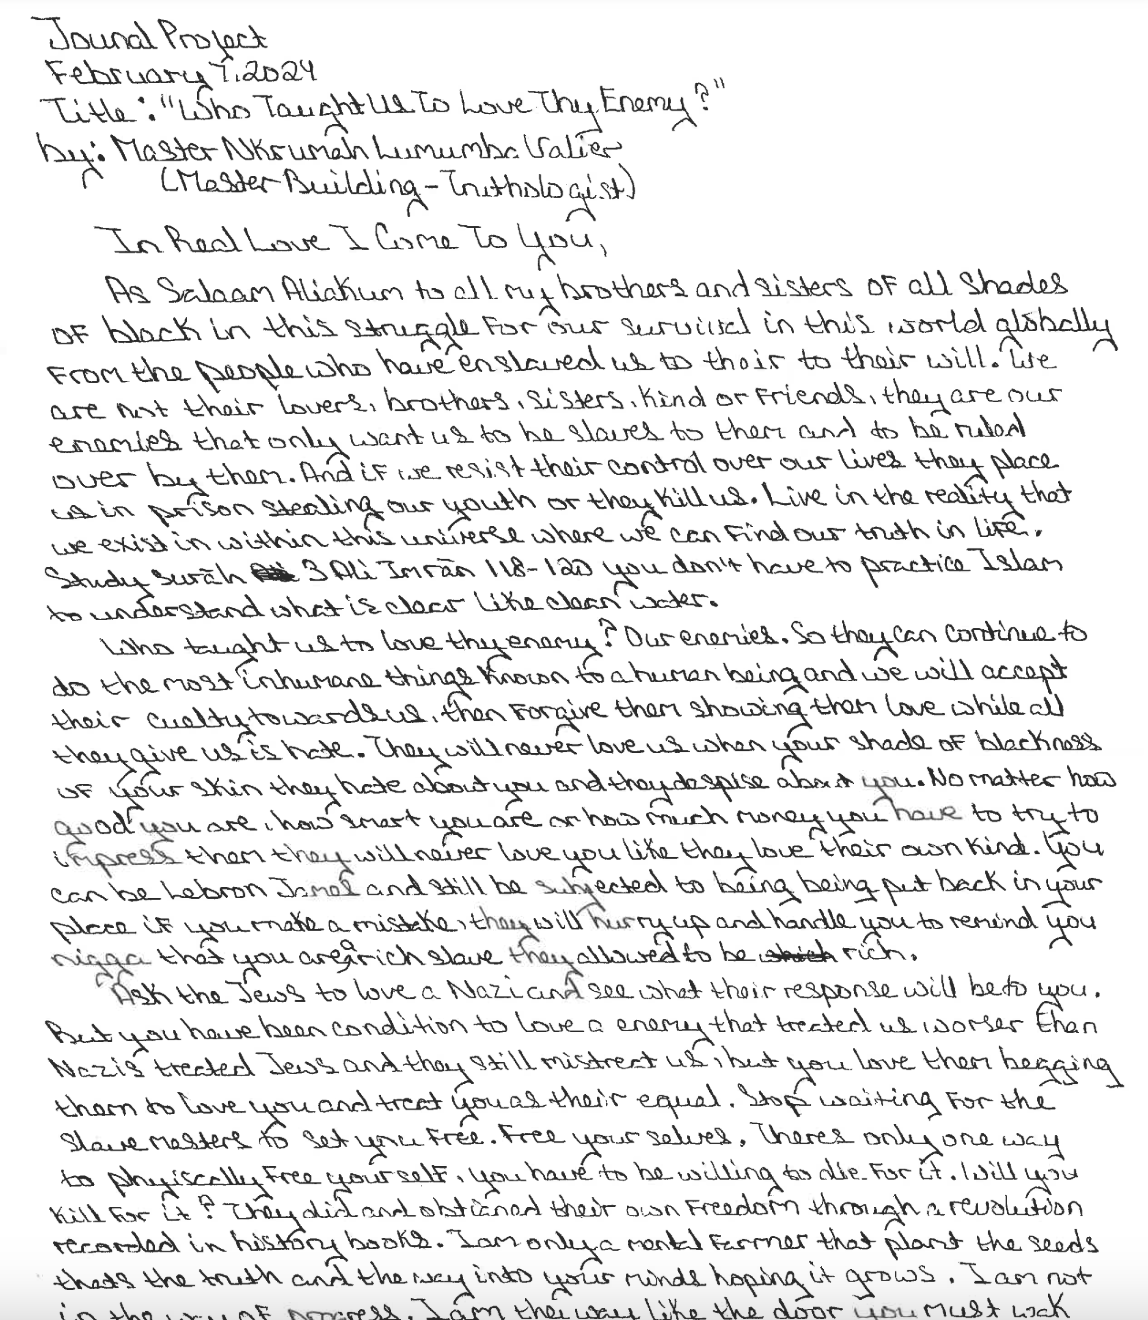 Jounal Project
February 7, 2024
Title: "Who Taught Us To Love Thy Enemy?"
by: Master Nkrumah Lumumba Valier
(Master Building-Truthologist)
In Real Love I Come To You,
As Salaam Aliakum to all my brothers and sisters of all Shades
of black in this struggle for our survival in this world globally
from the people who have enslaved us to their to their will. We
are not their lovers, brothers, sisters, kind or friends, they are our
enemies that only want us to be slaves to them and to be ruled
over by them. And if we resist their control over our lives they place
us in prison stealing our youth or they kill us. Live in the reality that
we exist in within this universe where we can find our truth in life.
Study Surah 3 Ali Imran 118-120 you don't have to practice Islam
to understand what is clear like clean water.
Who taught us to love thy enemy? Our enemies. So they can continue to
do the most inhumane things known to a human being and we will accept
their cuelty towards us, then forgive them showing them love while all
they give us is hate. They will never love us when your shade of blackness
of your skin they hate about you and they despise about you. No matter how
good you are, how smart you are or how much money you have to try to
impress them they will never love you like they love their own kind. You
can be Lebron James and still be subjected to being being put back in your
place if you make a mistake, they will hurry up and handle you to remind you
nigga that you are a rich slave they allowed to be rich.
Ask the Jews to love a Nazi and see what their response will be to you.
But you have been condition to love a enemy that treated us worser than
Nazis treated Jews and they still mistreat us, but you love them begging
them to love you and treat you as their equal. Stop waiting for the
slave masters to set you free. Free your selves, Theres only one way
to phyiscally free yourself, you have to be willing to die for it. Will you
kill for it? They did and obtianed their own freedom through a revolution
recorded in history books. I am only a mental farmer that plant the seeds
thats the truth and the way into your minds hoping it grows. I am not
in the way of progress. I am the way like the door you must walk